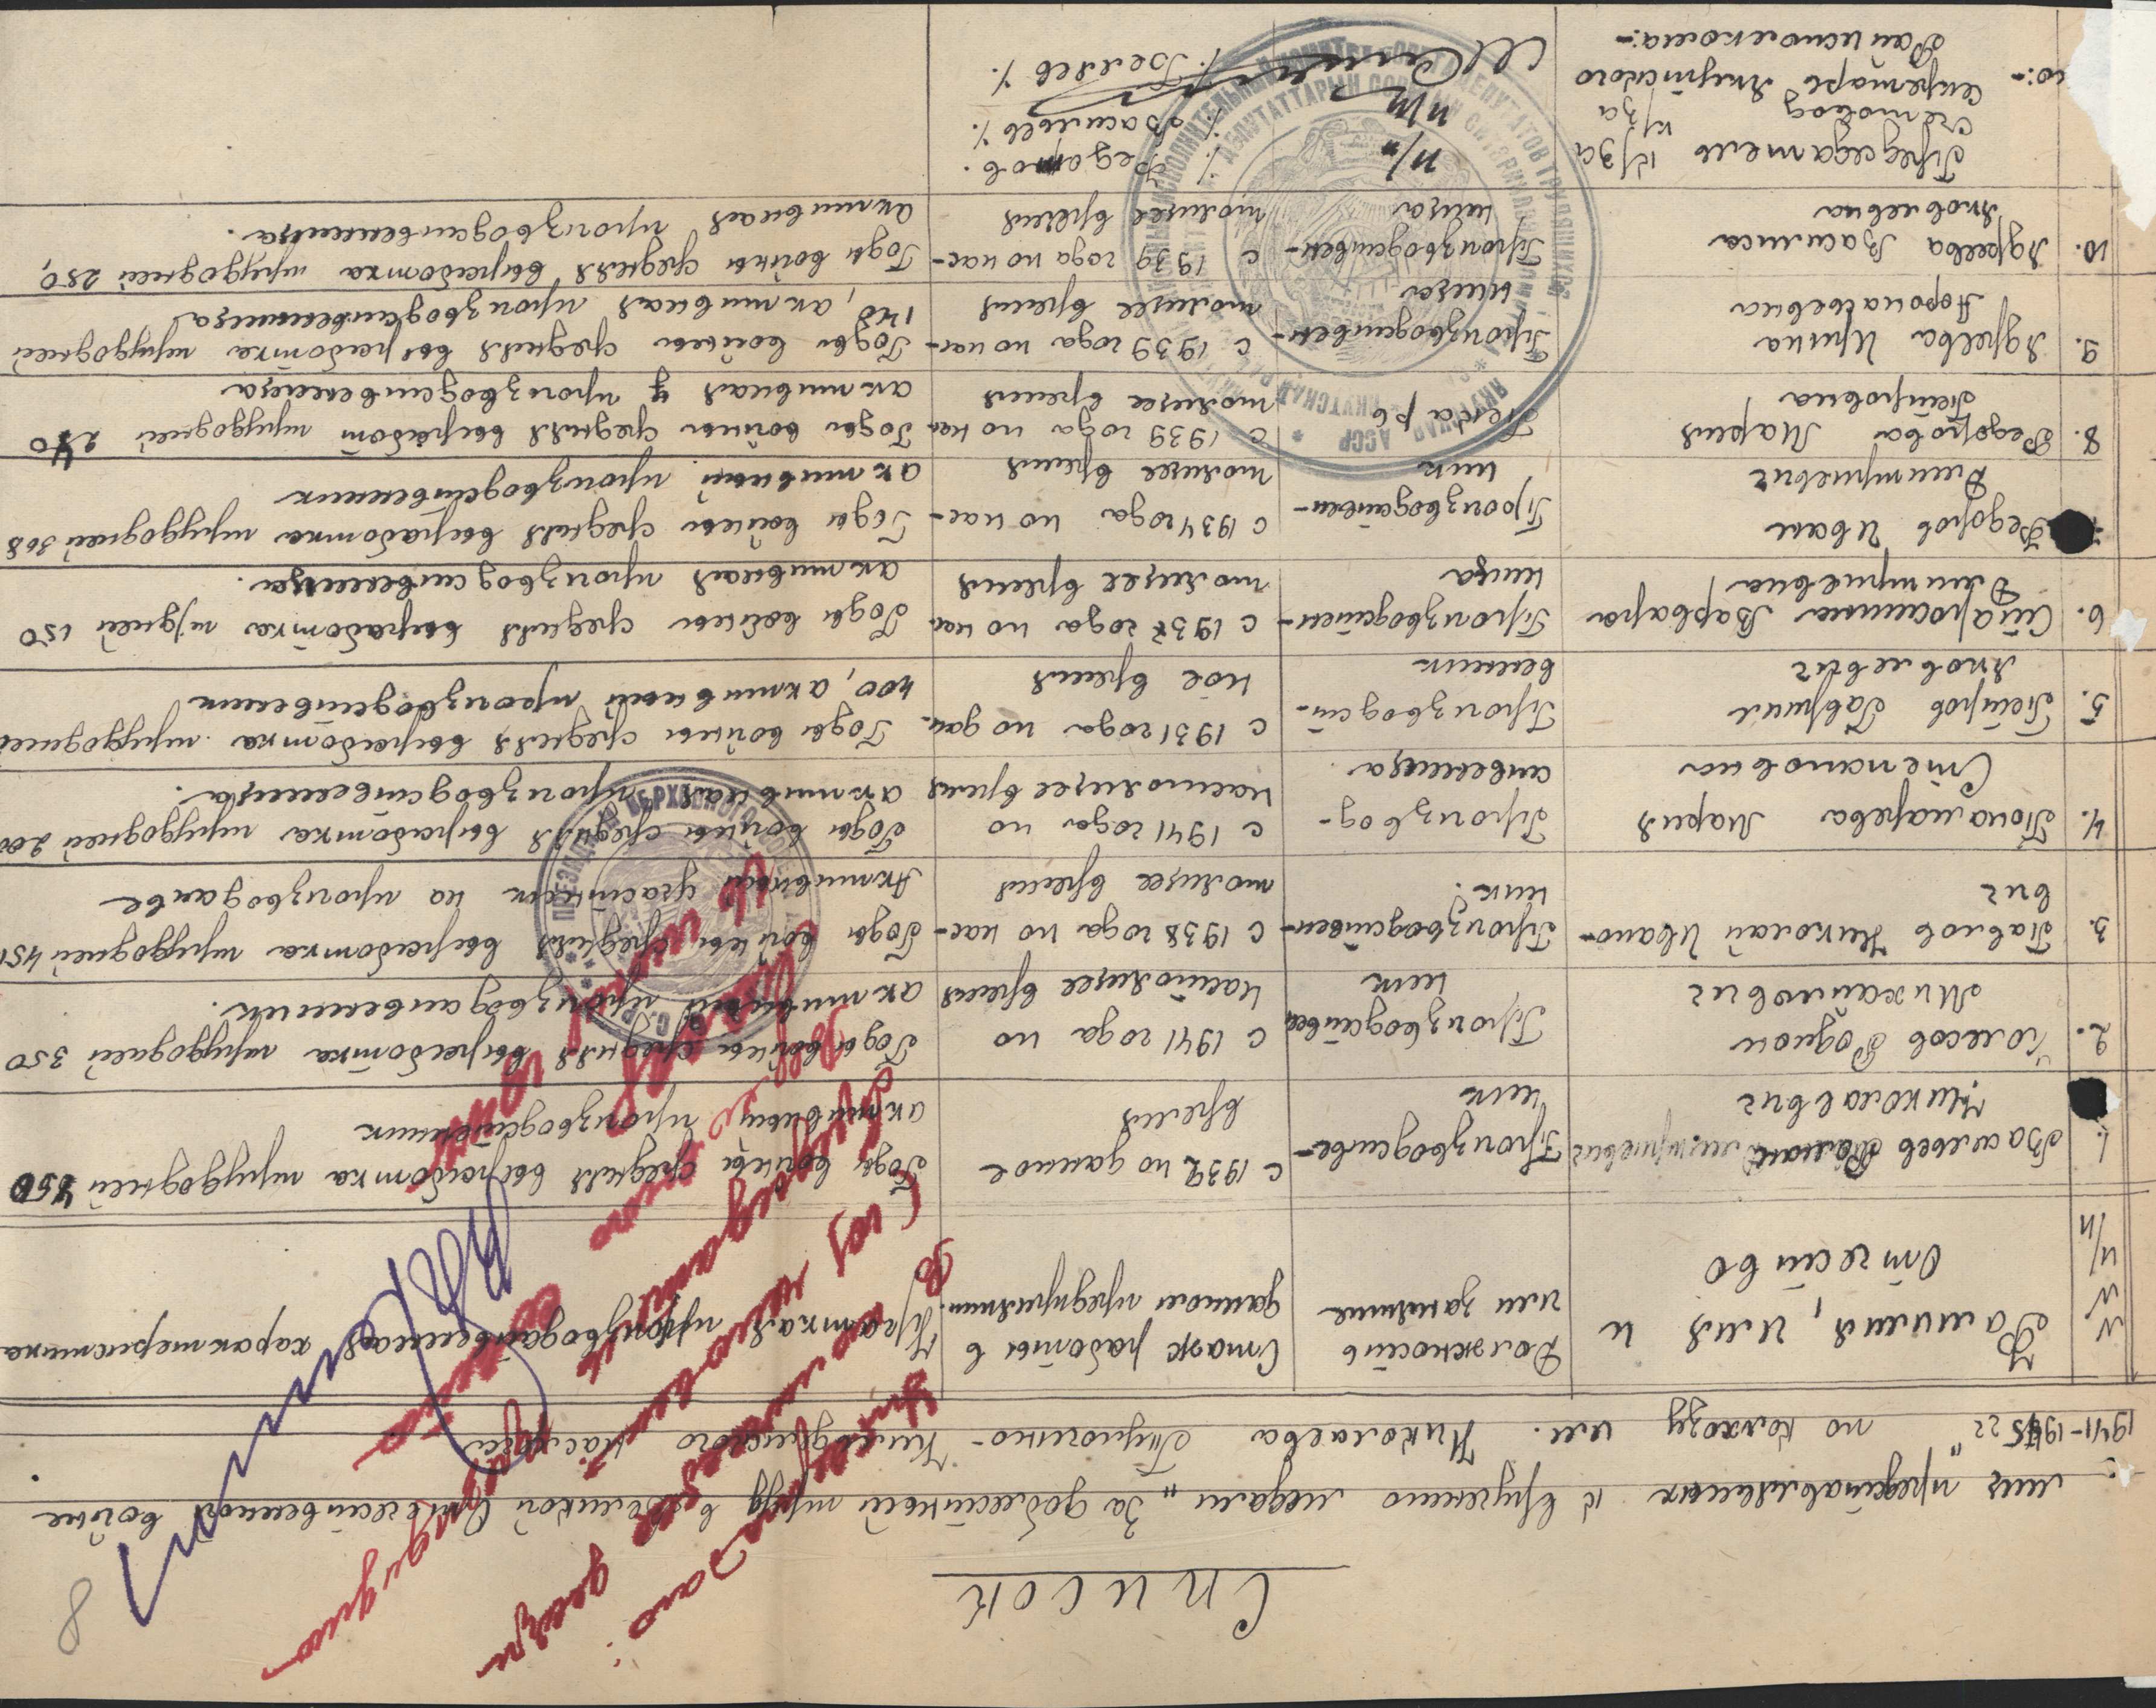 8
Список
лиц представленных к вручению медали "За доблестный труд в Великой Отечественной войне
1941-1945 гг" по колхозу им. Николаева Тулагино-Кильдямского наслега
№№ п/п
Фамилия, имя и Отчество
Должность или занятие
Стаж работы в данном предприятии
Краткая производственная характеристика
1. Васильев
Николаевич
Производственник
с 1932 по данное время
Годы войны средняя выработка трудодней 450
активный производственник
2. Колесов Родион Михайлович
Производственник
с 1941 года по настоящее время
Годы войны средняя выработка трудодней 350
активный производственник.
3. Павлов Николай Иванович
Производственник.
с 1938 года по настоящее время
Годы войны средняя выработка трудодней 451
Активный участник на производстве
4. Понамарева Мария Степановна
Производственница
с 1941 года по настоящее время
Годы войны средняя выработка трудодней 200
активная производственница.
5. Петров Гаврил Яковлевич
Производственник
с 1931 года по данное время
Годы войны средняя выработка трудодней
400, активный производственник
6. Старостина Варвара Дмитриевна
Производственница
с 1937 года по настоящее время
Годы войны средняя выработка т/дней 150
активная производственница.
Федоров Иван Дмитриевич
Производственник
с 1934 года по настоящее время
Годы войны средняя выработка трудодней 368
активный производственник
8. Федорова Мария Петровна
Пекарь
с 1939 года по настоящее время
Годы войны средняя выработ трудодней 240
активная производственница
9. Ядреева Ирина
Производственница
с 1939 года по настоящее время
Годы войны средняя выработка трудодней
140, активная производственница
10. Ядреева Василиса Яковлевна
Производственница
с 1939 года по настоящее время
Годы войны средняя выработка трудодней 280,
активная производственница.
Председатель к/за п/п /Федотов.
Счетовод к/за п/п /Васильев/
Секретарь Якутского
Райисполкома:- /Беляев/.